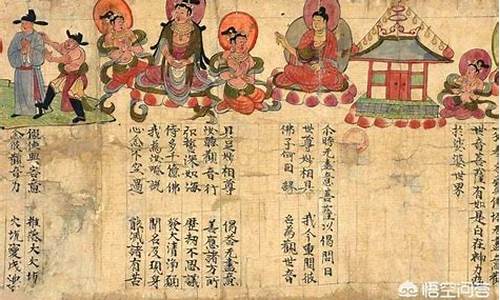 世音菩薩有如是自在神力遊
於娑婆世界
尔時無盡意菩薩以偈問曰
世尊妙相具 我今重問彼
佛子何因緣 名為觀世音
具足妙相尊 偈答無盡意
汝聽觀音行 善應諸方所
弘誓深如海 歷劫不思議
侍多千億佛 發大清淨願
我為汝略說 聞名及見身
心念不空過 能滅諸有苦
假使興害意 推落大火坑
念彼觀音力 火坑變成池
悟空问答